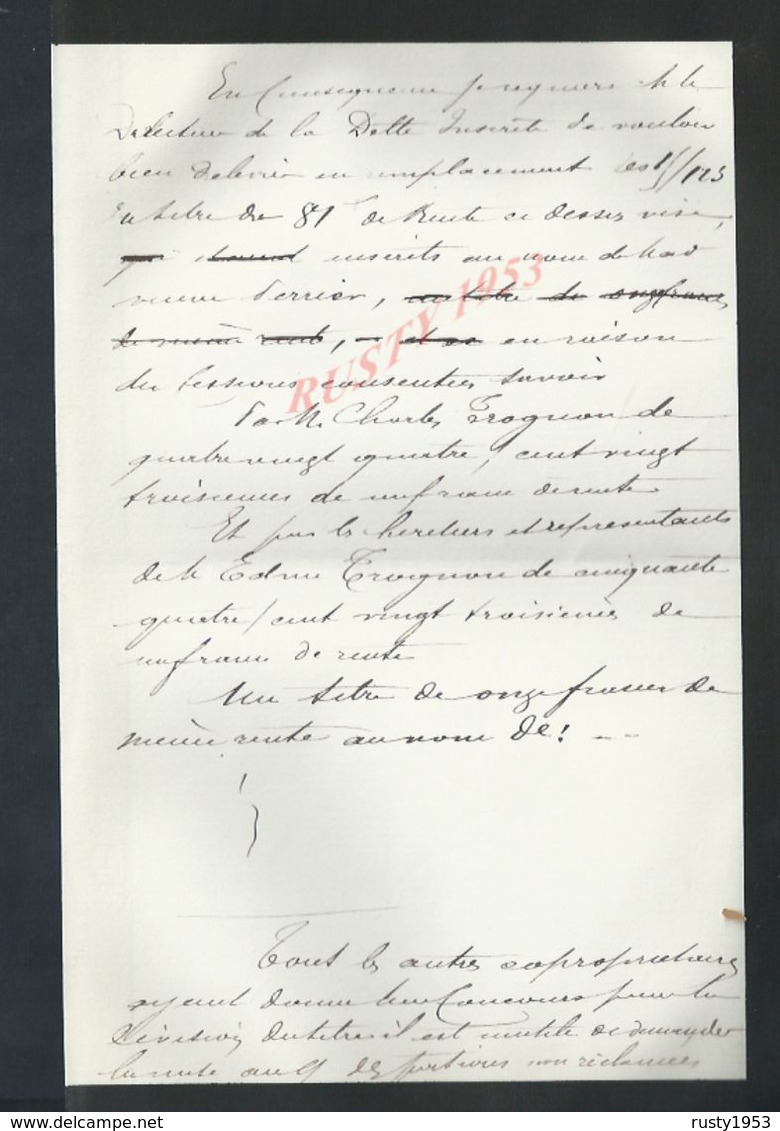 En Conséquence je requiers M. le
Directeur de la Dette Inscrite de vouloir
bien délivrer en remplacement des /123
du titre de 81f de Rente ci dessus visé,
inscrits au nom de
veuve Perrier, au titre de onze francs
de même rente, en raison
des Cessions consenties savoir
Par M. Charles Trognon de
quatre vingt quatre / cent vingt
troisièmes de neuf francs de rente
Et par les héritiers et représentants
de M Edme Trognon de cinquante
quatre / cent vingt troisièmes de
neuf francs de rente
Un titre de onze francs de
même rente au nom de : --
Tous les autres copropriétaires
ayant donné leur Concours pour la
Division du titre il est inutile de demander
la note des portions non réclamées
RUSTY 1953
delcampe.net
rusty1953